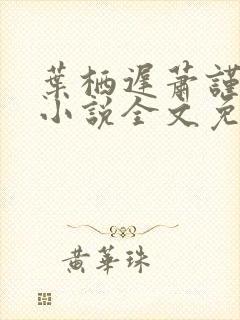 葉栖遲蕭謹
小說全文免
黃華珠